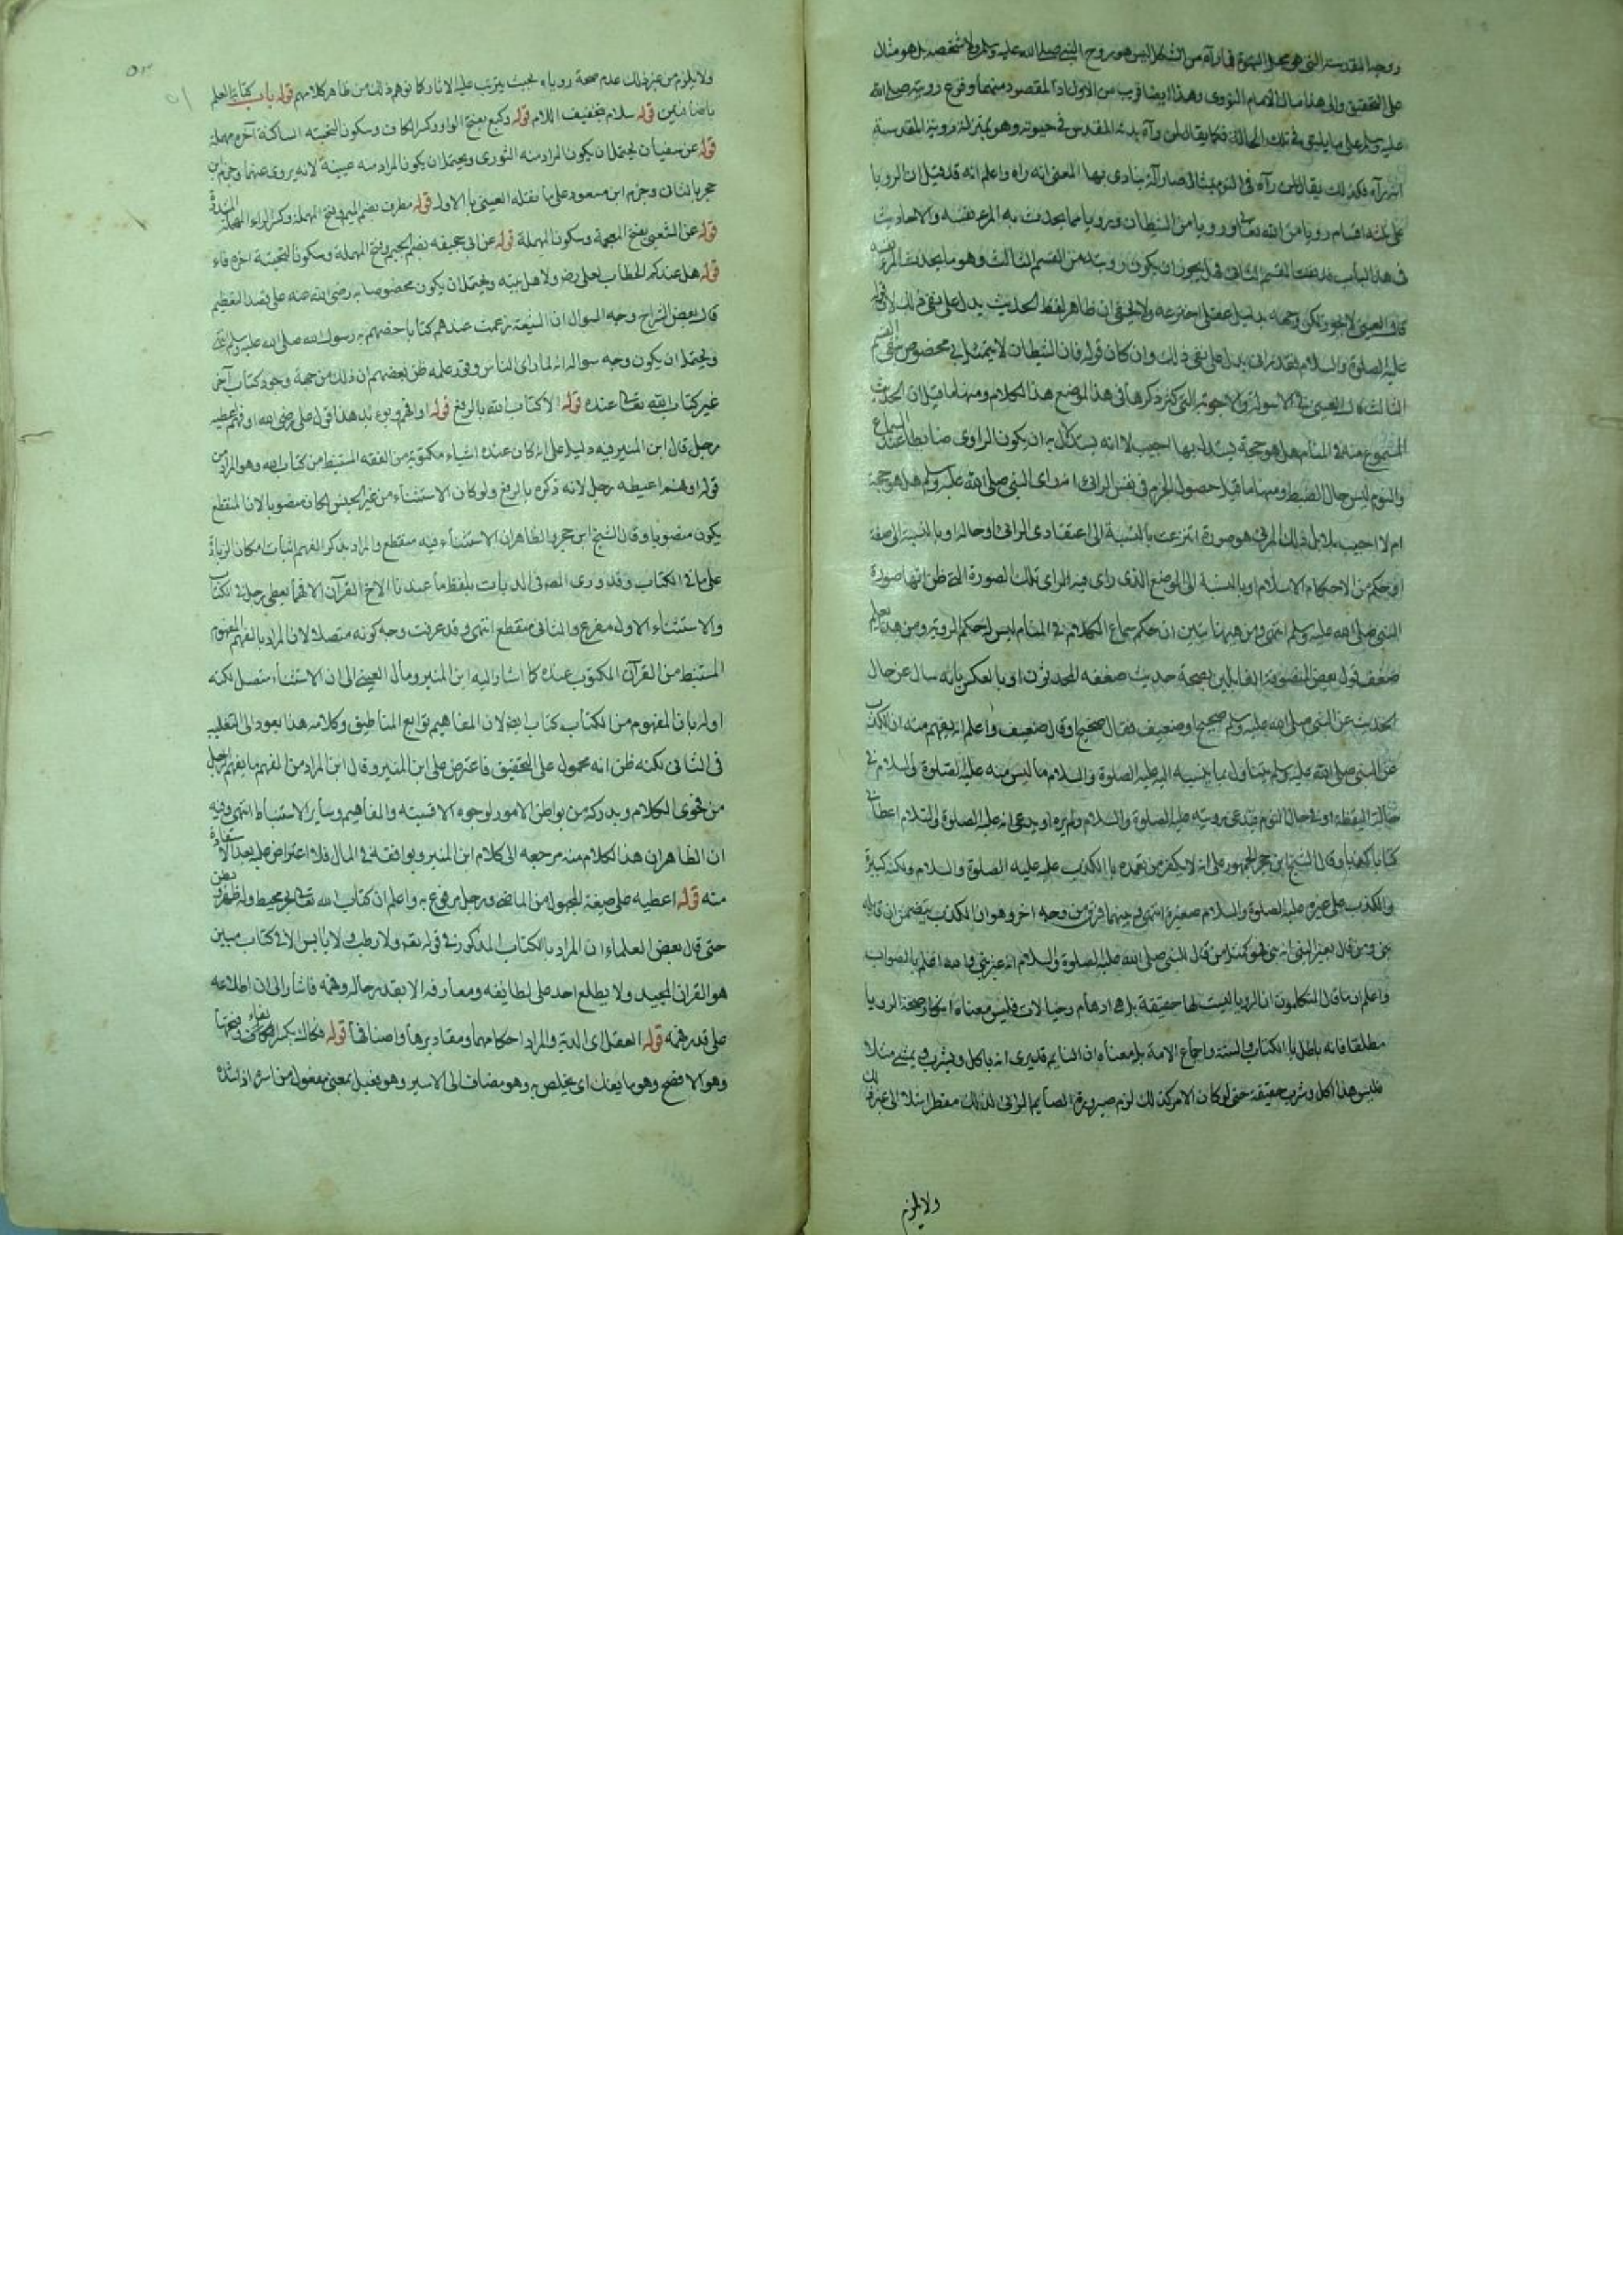 روحه المقدسة التي هي محل النبوة فما رآه من الشكل ليس هو روح النبي صلى الله عليه وسلم ولا شخصه بل هو مثال
على التحقيق والى هذا مال الامام النووي وهذا ايضا قريب من الاول اذ المقصود منهما وقوع رويته صلى الله
عليه وسلم على ما يليق في تلك الحالة فكما يقال لمن رآه بدنه المقدس في حيوته وهو بمنزلة روية المقدسة
انه رآه فكذلك يقال لمن رآه في النوم بمثال صار آلة ينادى بها المعنى انه راه واعلم انه قد قيل ان الرويا
على ثلثة اقسام رويا من الله تعالى ورويا من الشيطان ورويا مما يحدث به المرء نفسه والاحاديث
في هذا الباب قد نفت القسم الثاني فهل يجوز ان يكون رويته من القسم الثالث وهو ما يحدث المرء نفسه
قال العيني لا يجوز لكن وجهه بدليل عقلي اخترعه ولا يخفى ان ظاهر لفظ الحديث يدل على نفي ذلك لان قوله
عليه الصلوة والسلام فقد رآني يدل على نفي ذلك وان كان قوله فان الشيطان لا يتمثل بي مخصوص بنفي القسم
الثالث قال العيني في الاسولة والاجوبة التي كثر ذكرها في هذا الموضع هذا الكلام ومنها ما قيل ان الحديث
المسموع منه في المنام هل هو حجة يستدل بها اجيب لا انه يستدل به ان يكون الراوي ضابطا عند السماع
والنوم ليس حال الضبط ومنها ما قيل حصول الجزم في نفس الرائي انه رأى النبي صلى الله عليه وسلم هل هو حجة
ام لا اجيب بلا بل ذلك المرئي هو صورة انتزعت بالنسبة الى اعتقادي الرائي او حاله او بالنسبة الى صفة
او حكم من الاحكام الاسلام او بالنسبة الى الموضع الذي راى فيه الراى تلك الصورة التي ظن انها صورة
النبي صلى الله عليه وسلم انتهى ومن ههنا تبين ان حكم سماع الكلام في المنام ليس له حكم الروية ومن هذا يعلم
ضعف قول بعض المتصوفة القائلين بصحة حديث ضعفه المحدثون او بالعكس بانه سال عن حال
الحديث عن النبي صلى الله عليه وسلم صحيح او ضعيف فقال صحيح او قال ضعيف واعلم انه يفهم منه ان الكذب
عن النبي صلى الله عليه وسلم يتناول بما ينسبه اليه عليه الصلوة والسلام ما ليس منه عليه الصلوة والسلام في
حالة اليقظة او في حال النوم فيدعي رويته عليه الصلوة والسلام ولم يره او يدعي انه عليه الصلوة والسلام اعطاني
كتابا كهذا وقال الشيخ ابن حجر الجمهور على انه لا يكفر من تعمده بالكذب عليه عليه الصلوة والسلام ولكنه كبيرة
والكذب على غيره عليه الصلوة والسلام صغيرة انتهى وبينهما فرق من وجه اخر وهو ان الكذب يتضمن ان قايله
نبي ومن قال بغير النبي انه نبي فهو كمثل من قال للنبي صلى الله عليه الصلوة والسلام انه غير نبي فالله اعلم بالصواب
واعلم ان ما قال المتكلمون ان الرويا ليست لها حقيقة بل هي اوهام وخيالات فليس معناه انكار صحة الرويا
مطلقا فانه باطل بالكتاب والسنة واجماع الامة بل معناه ان النايم قد يرى انه ياكل ويشرب ويمشي مثلا
فليس هذا اكل وشرب حقيقة حتى لو كان الامر كذلك لزم صيرورة الصايم الرائي لذلك مفطرا مثلا الى غير ذلك
ولا يلزم
ولا يلزم من غير ذلك عدم صحة روياه بحيث يترتب عليه الاثار كما توهم ذلك من ظاهر كلامهم قوله باب كتابة العلم
قوله سلام بتخفيف اللام قوله وكيع بفتح الواو وكسر الكاف وسكون التحتية الساكنة آخره مهملة
قوله عن سفيان يحتمل ان يكون المراد منه الثوري ويحتمل ان يكون المراد منه عيينة لانه يروى عنهما وجزم ابن
حجر بالثاني وجزم ابن مسعود على ما نقله العيني بالاول قوله مطرف بضم الميم وفتح المهملة وكسر الراء المهملة المشددة
قوله عن الشعبي بفتح المعجمة وسكون المهملة قوله عن ابي جحيفه بضم الجيم وفتح المهملة وسكون التحتية اخره فاء
قوله هل عندكم الخطاب لعلي رض ولاهل بيته ويحتمل ان يكون مخصوصا به رضي الله عنه على قصد التعظيم
قال بعض الشراح وجه السوال ان الشيعة زعمت عندهم كتابا خصهم به رسول الله صلى الله عليه وسلم
ويحتمل ان يكون وجه سواله انه لما رأى الناس وقد علمه ظن بعضهم ان ذلك من جهة وجود كتاب آخر
غير كتاب الله تعالى عنده قوله الا كتاب الله بالرفع قوله او افهم هذا قول علي رضي الله او فهم اعطيه
رجل قال ابن المنير فيه دليل على انه كان عنده اشياء مكتوبة من الفقه المستنبط من كتاب الله وهو المراد من
قوله او فهم اعطيه رجل لانه ذكره بالرفع ولو كان الاستثناء من غير الجنس لكان منصوبا لان المنقطع
يكون منصوبا وقال الشيخ ابن حجر والظاهر ان الاستثناء فيه منقطع والمراد بذكر الفهم اثبات مكان الزيادة
على ما في الكتاب وقد روى المص في الديات بلفظ ما عندنا الا في القرآن الا فهما يعطى رجل في الكتاب
والاستثناء الاول مفرغ والثاني منقطع انتهى وقد عرفت وجه كونه متصلا لان المراد بالفهم المفهوم
المستنبط من القرآن المكتوب عنده كما اشار اليه ابن المنير ومال العيني الى ان الاستثناء متصل لكنه
اوله بان المفهوم من الكتاب كتاب ايضا لان المفاهيم توابع المناطيق وكلامه هذا يعود الى التغليب
في الثاني لكنه ظن انه محمول على التحقيق فاعترض على ابن المنير وقال ابن المراد من الفهم ما يفهم الرجل
من فحوى الكلام ويدركه من بواطن الامور لوجوه الاقيسة والمفاهيم وساير الاستنباط انتهى وفيه
ان الظاهر ان هذا الكلام منه مرجعه الى كلام ابن المنير ويوافقه في المال فلا اعتراض عليه بعد الاستفادة
منه قوله اعطيه على صيغة المجهول من الماضي ورجل مرفوع به واعلم ان كتاب الله تعالى بحر محيط وله ظهر وبطن
حتى قال بعض العلماء ان المراد بالكتاب المذكور في قوله تعم ولا رطب ولا يابس الا في كتاب مبين
هو القران المجيد ولا يطلع احد على لطائفه ومعارفه الا بقدر حاله وفهمه فاشار الى ان اطلاعه
على قدر فهمه قوله العقل اي الدية والمراد احكامها ومقاديرها واصنافها قوله فكاك بكسر الفاء وفتحها
وهو الافصح وهو ما يفك اي يخلص به وهو مضاف الى الاسير وهو فعيل بمعنى مفعول من اسره اذا شده